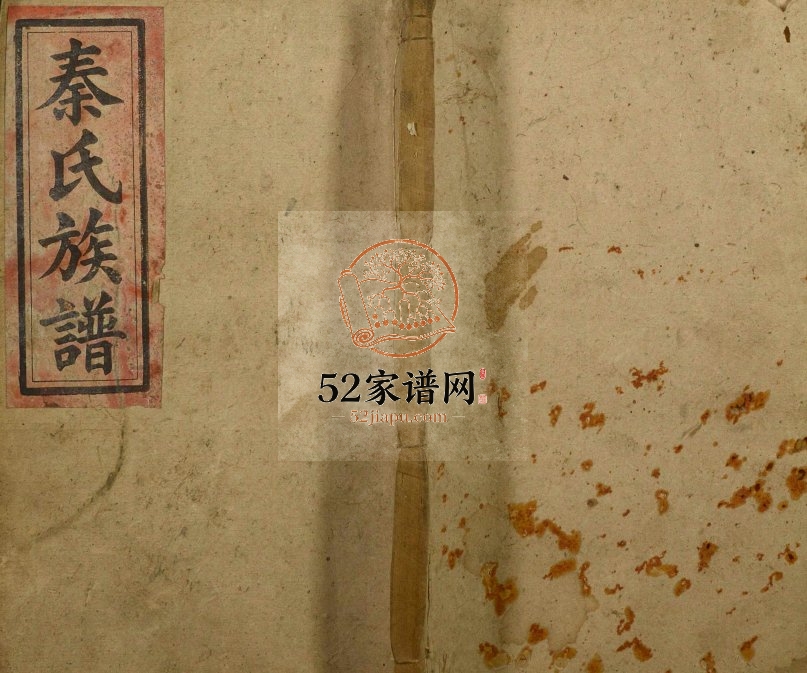 秦氏族譜
52家谱网
52jiapu.com